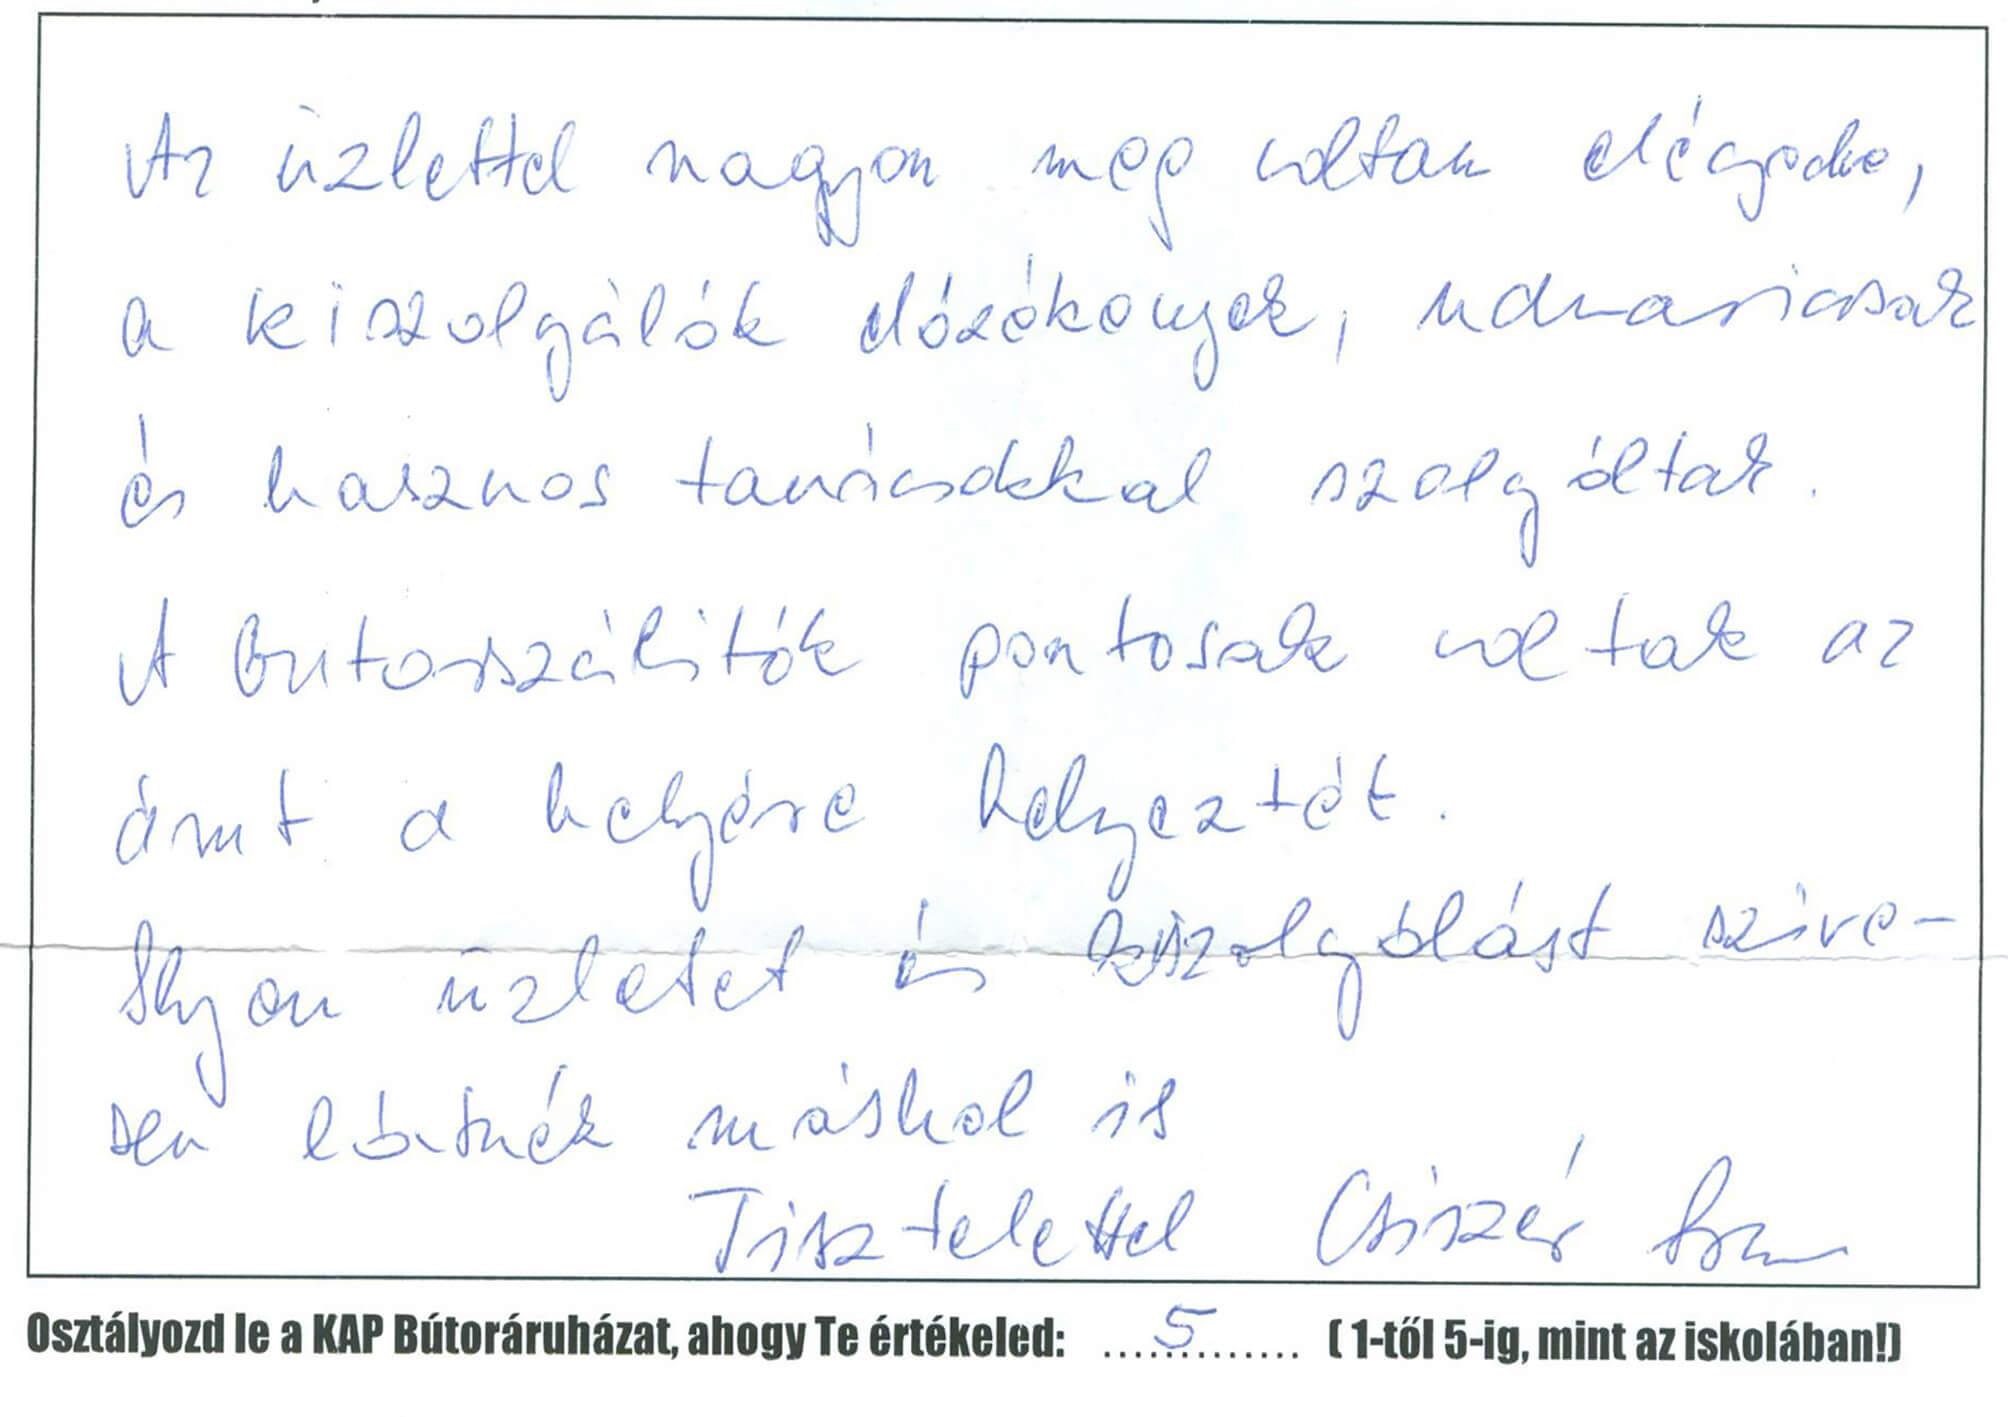 Az üzlettel nagyon meg voltam elégedve,
a kiszolgálók előzékenyek, udvariasak
és hasznos tanácsokkal szolgáltak.
A bútorszállítók pontosak voltak az
árut a helyére helyezték.
Ilyen üzletet és kiszolgálást szíve-
sen látnék máshol is
Tisztelettel Csiszér
Osztályozd le a KAP Bútoráruházat, ahogy Te értékeled: .....5........ ( 1-től 5-ig, mint az iskolában!)